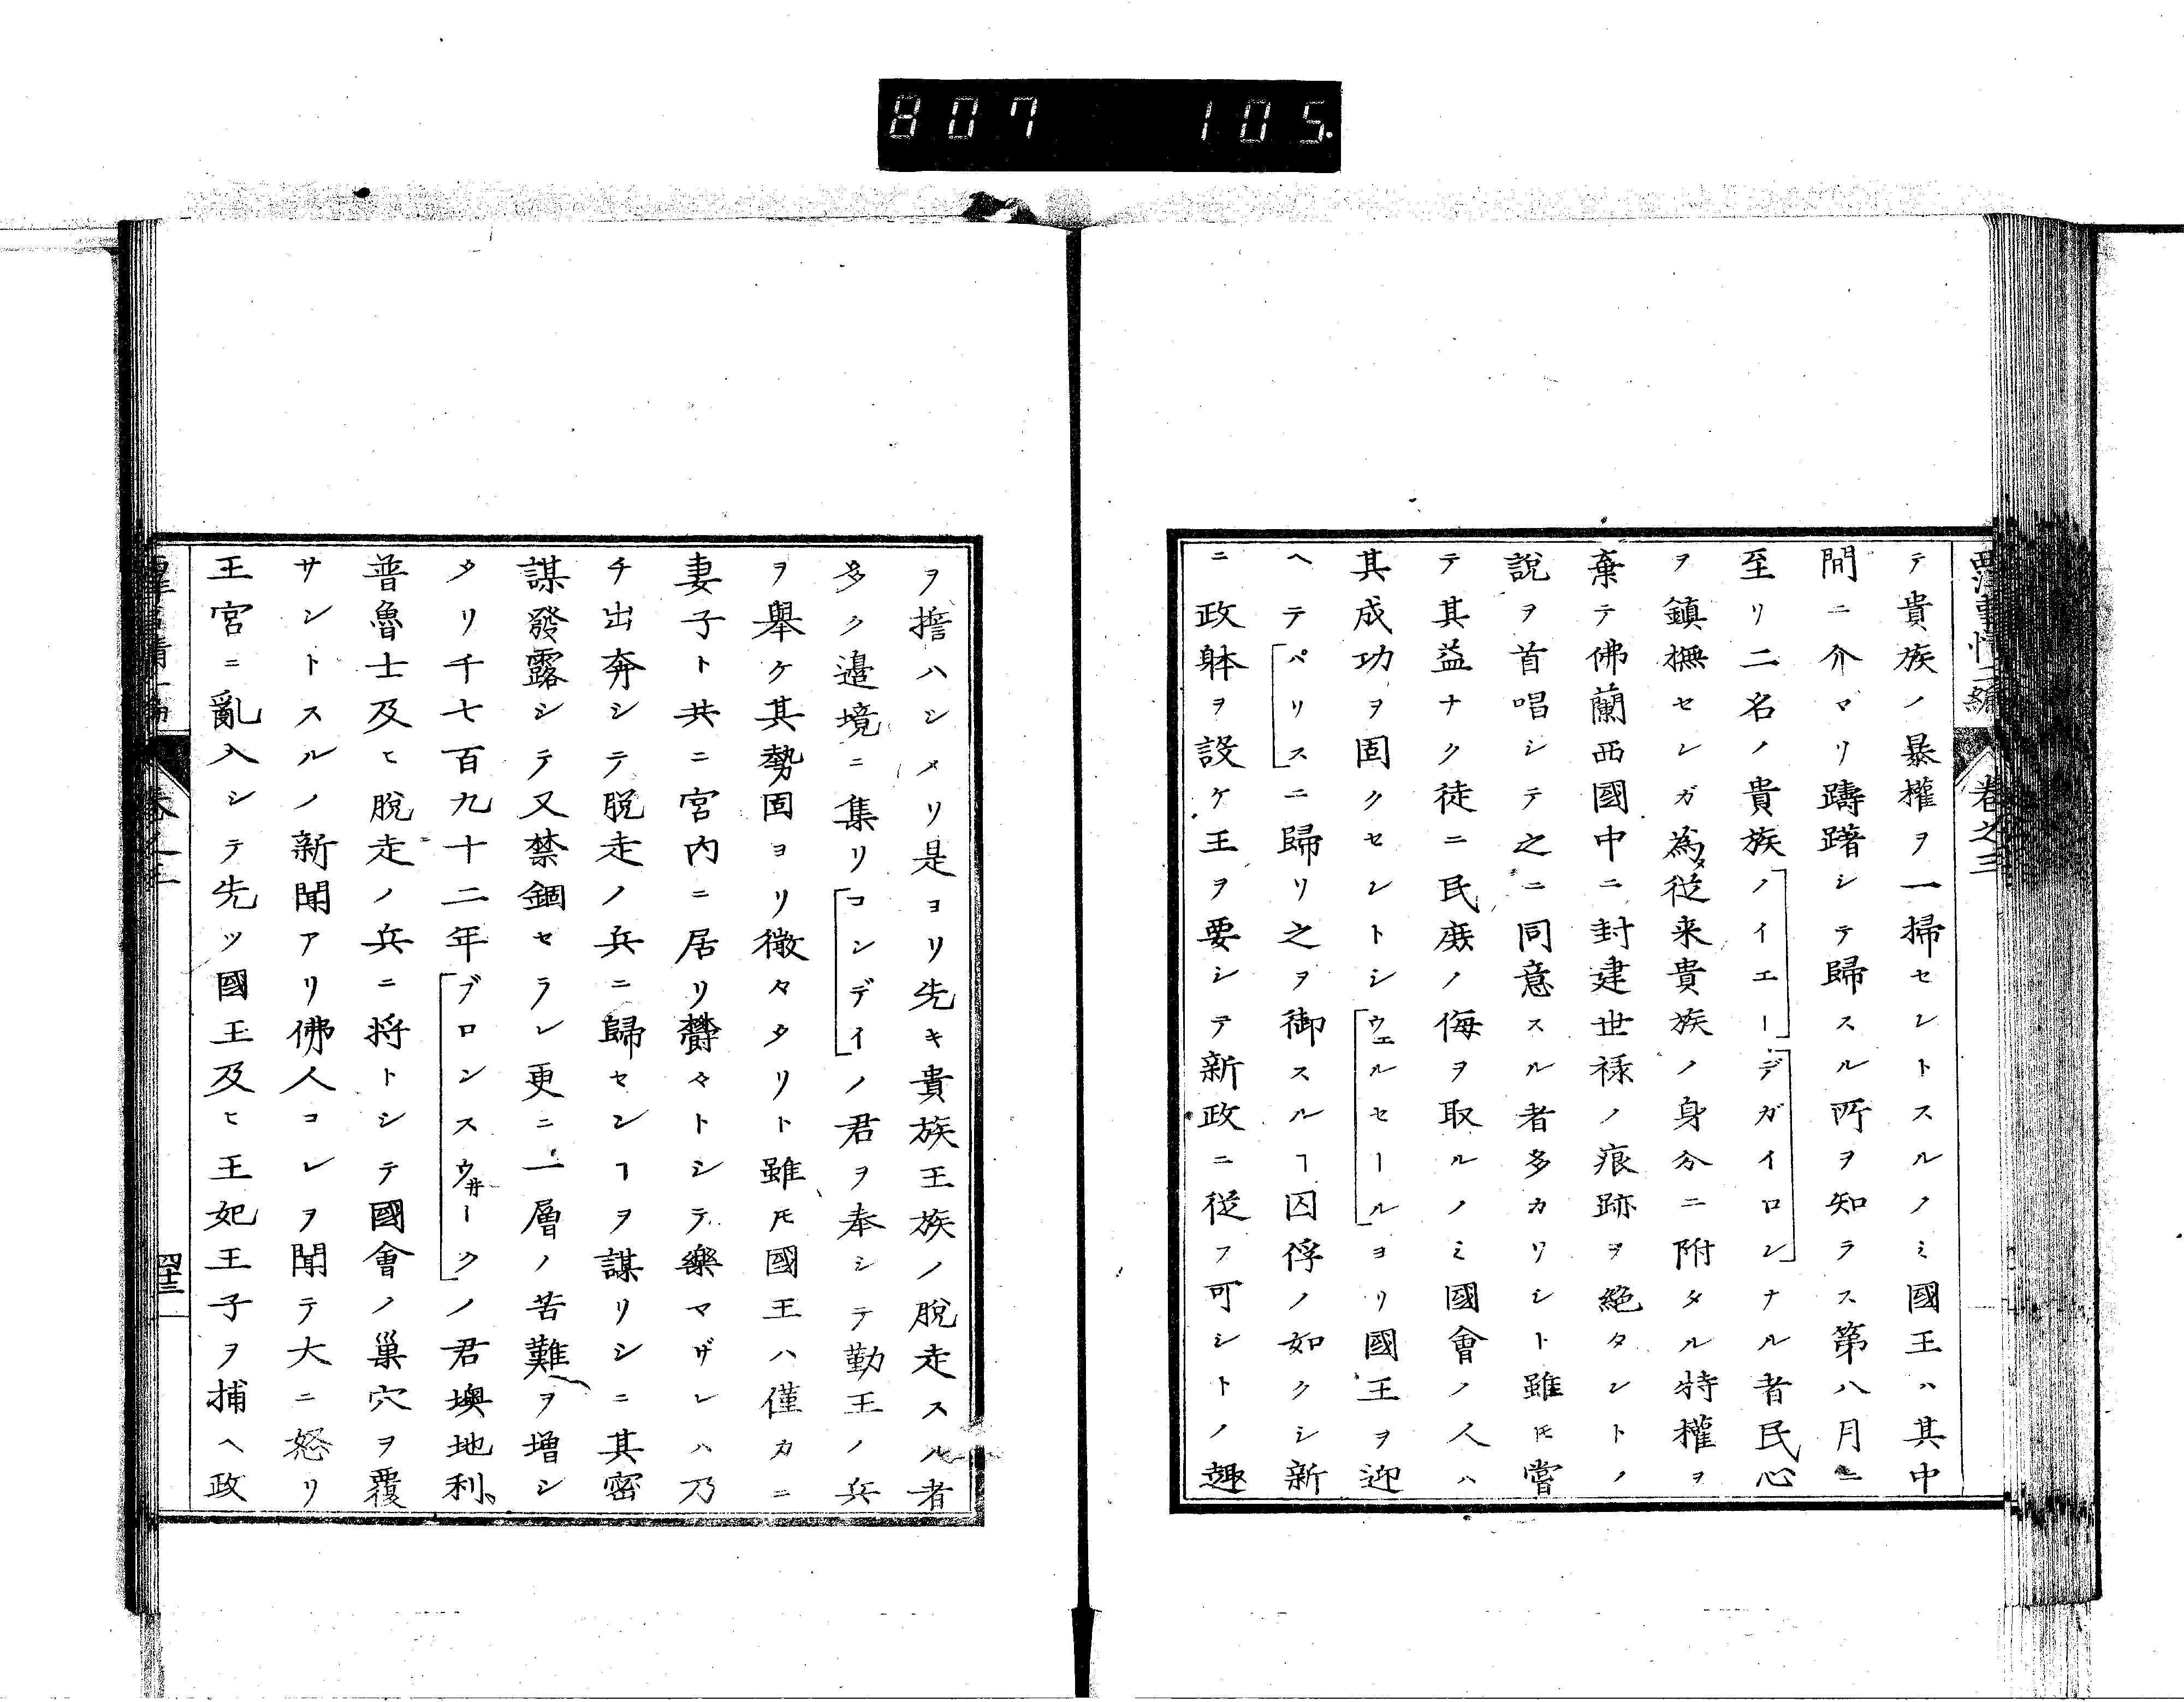 807 105.
西洋事情二編 卷之三
テ貴族ノ暴權ヲ一掃セントスルノミ國王ハ其中
間ニ介マリ躊躇シテ歸スル所ヲ知ラス第八月ニ
至リ二名ノ貴族ノイエーデガイロンナル者民心
ヲ鎮撫センガ為メ従来貴族ノ身分ニ附タル特權ヲ
棄テ佛蘭西國中ニ封建世禄ノ痕跡ヲ絶タントノ
說ヲ首唱シテ之ニ同意スル者多カリシト雖𪜈嘗
テ其益ナク徒ニ民庶ノ侮ヲ取ルノミ國會ノ人ハ
其成功ヲ固クセントシウエルセールヨリ國王ヲ迎
ヘテパリスニ歸リ之ヲ御スルヿ囚俘ノ如クシ新
ニ政躰ヲ設ケ王ヲ要シテ新政ニ従フ可シトノ趣
ヲ擔ハシメリ是ヨリ先キ貴族王族ノ脫走スル者
多ク邉境ニ集リコンデイノ君ヲ奉シテ勤王ノ兵
ヲ舉ケ其勢固ヨリ微々タリト雖𪜈國王ハ僅カニ
妻子ト共ニ宮内ニ居リ欝々トシテ樂マザレハ乃
チ出奔シテ脫走ノ兵ニ歸センヿヲ謀リシニ其密
謀發露シテ又禁錮セラレ更ニ一層ノ苦難ヲ増シ
タリ千七百九十二年ブロンスウ井ークノ君墺地利、
普魯士及ヒ脫走ノ兵ニ将トシテ國會ノ巢穴ヲ覆
サントスルノ新聞アリ佛人コレヲ聞テ大ニ怒リ
王宮ニ亂入シテ先ツ國王及ヒ王妃王子ヲ捕ヘ政
四十三